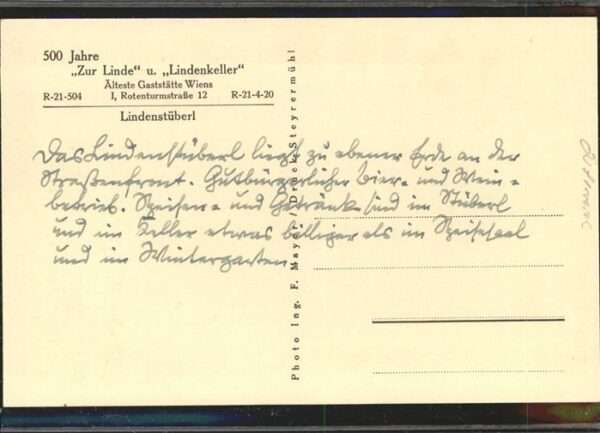 500 Jahre
„Zur Linde“ u. „Lindenkeller“
Älteste Gaststätte Wiens
R-21-504 I, Rotenturmstraße 12 R-21-4-20
Lindenstüberl
Das Lindenstüberl liegt zu ebener Erde an der
Straßenfront. Gutbürgerlicher Bier- und Wein-
betrieb. Speisen- und Getränke sind im Stüberl
und im Keller etwas billiger als im Speisesaal
und im Wintergarten.
Photo Ing. F. Mayer / Druck Steyrermühl